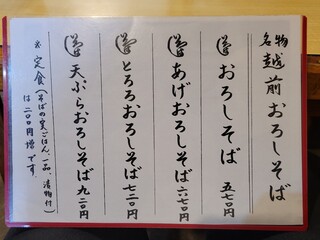 名物 越前おろしそば
おろしそば 五七〇円
あげおろしそば 六七〇円
とろろおろしそば 七二〇円
天ぷらおろしそば 九二〇円
※定食(そばの実ごはん、一品、漬物付)
は二〇〇円増です。